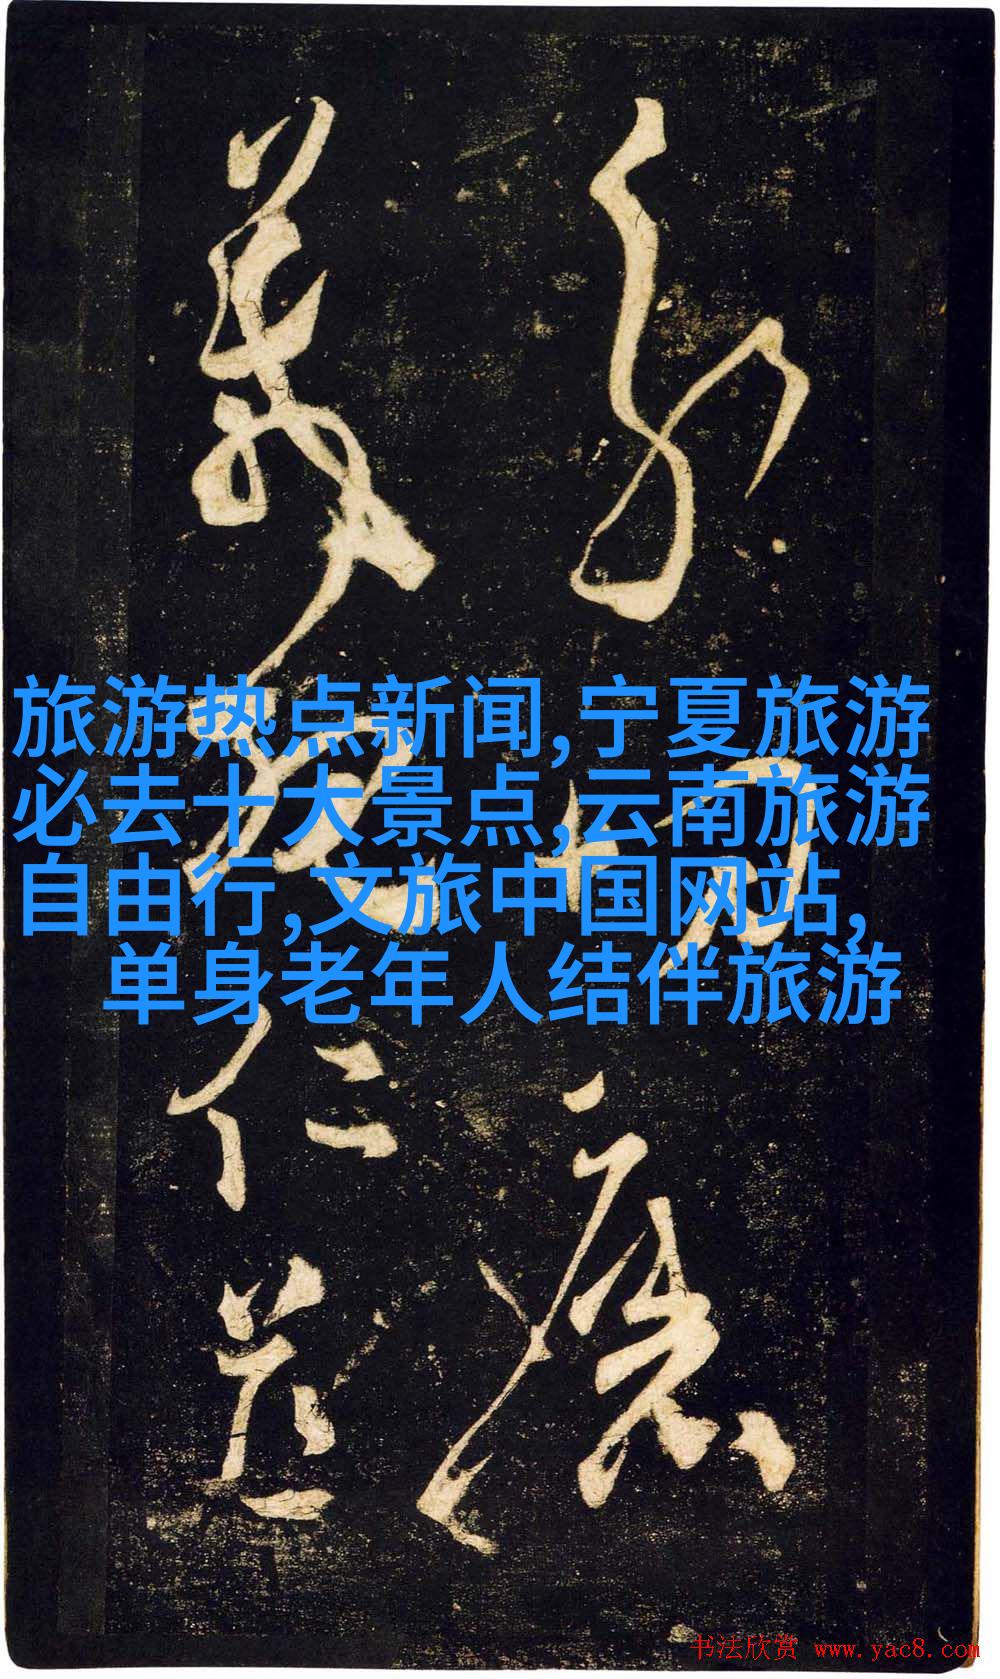 分切磨
箴規仁慈
旅游热点新闻,宁夏旅游
必去十大景点,云南旅游
自由行,文旅中国网站,
单身老年人结伴旅游
书法欣赏 www.yac8.com